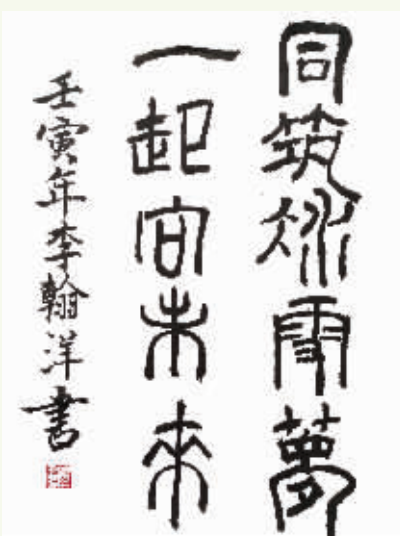 同筑冰雪夢
一起向未来
壬寅年李翰洋書